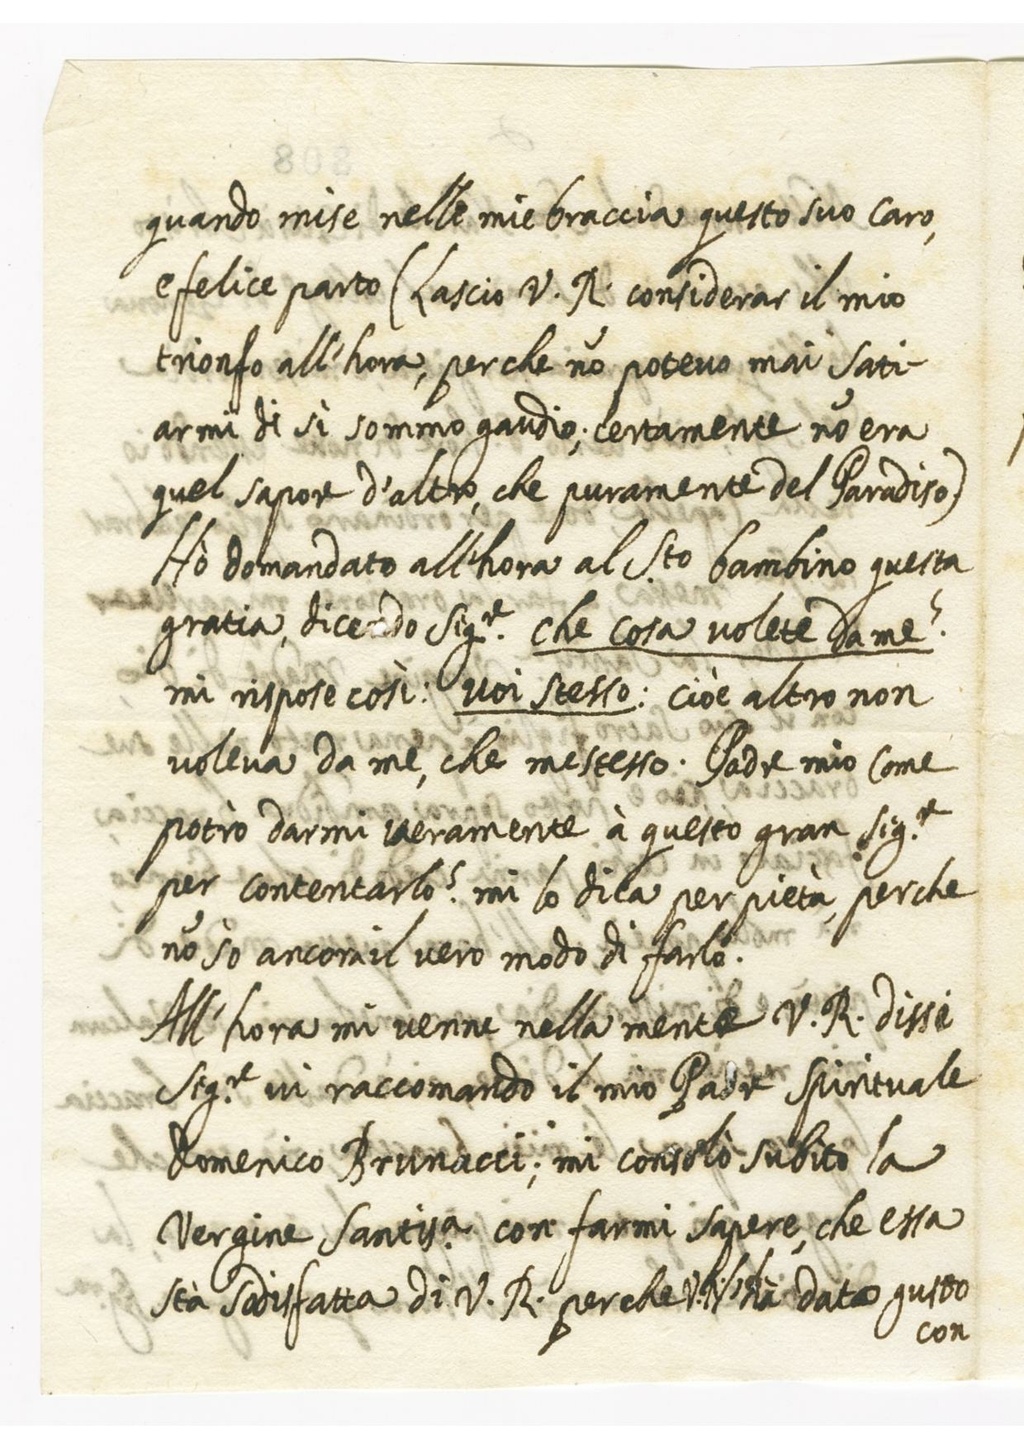 quando mise nelle mie braccia questo suo caro,
e felice parto (Lascio V. R. considerar il mio
trionfo all'hora, perche nõ potevo mai sati-
armi di sì sommo gaudio; certamente nõ era
quel sapore d'altro, che puramente del Paradiso)
Hò domandato all'hora al S.to bambino questa
gratia, dicendo Sig.re. che cosa volete da me?
mi rispose così: voi stesso: cioè altro non
voleva da me, che me stesso. Padre mio come
potrò darmi veramente à questo gran Sig.re
per contentarlo? mi lo dica per pietà, perche
nõ sò ancora il vero modo di farlo.
All'hora mi venne nella mente V. R. dissi
Sig.re vi raccomando il mio Padre Spirituale
Domenico Brunacci; mi consolò subito la
Vergine Santis.a con farmi sapere, che essa
stà sodisfatta di V. R. perche V. R. l'hà dato gusto
con